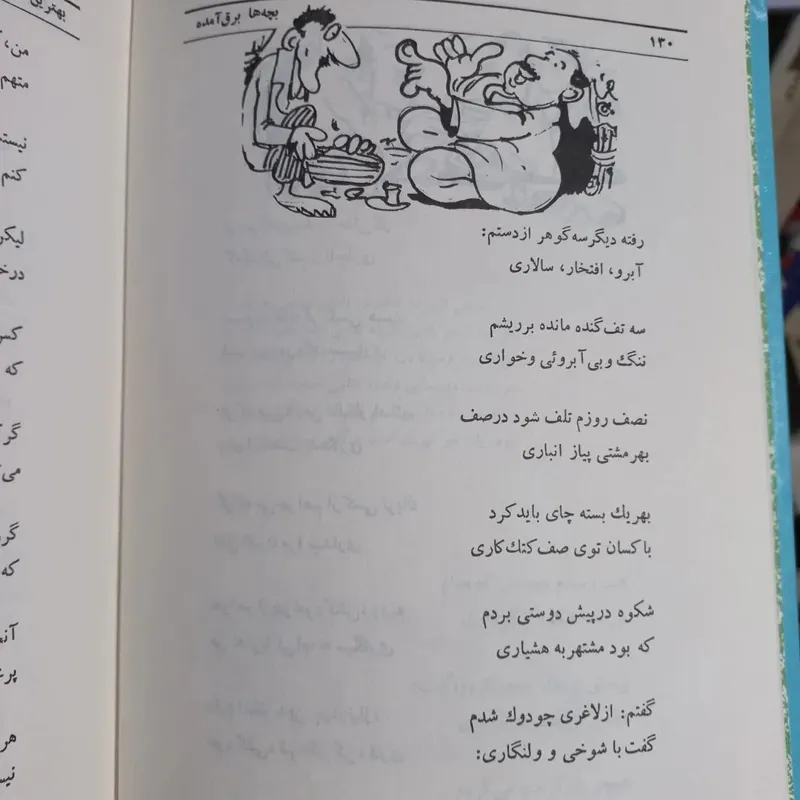 بچه‌ها برق آمده
۱۳۰
رفته دیگر سه گوهر از دستم:
آبرو، افتخار، سالاری
سه تف گنده مانده بر ریشم
ننگ و بی آبروئی و خواری
نصف روزم تلف شود در صف
بهر مشتی پیاز انباری
بهر یك بسته چای باید کرد
با کسان توی صف کتك کاری
شکوه در پیش دوستی بردم
که بود مشتهر به هشیاری
گفتم: از لاغری چو دوك شدم
گفت با شوخی و ولنگاری:
بهترین
من،
متهم
نیستم
کنم
لیکن
کس
که
گر
می
که
هر